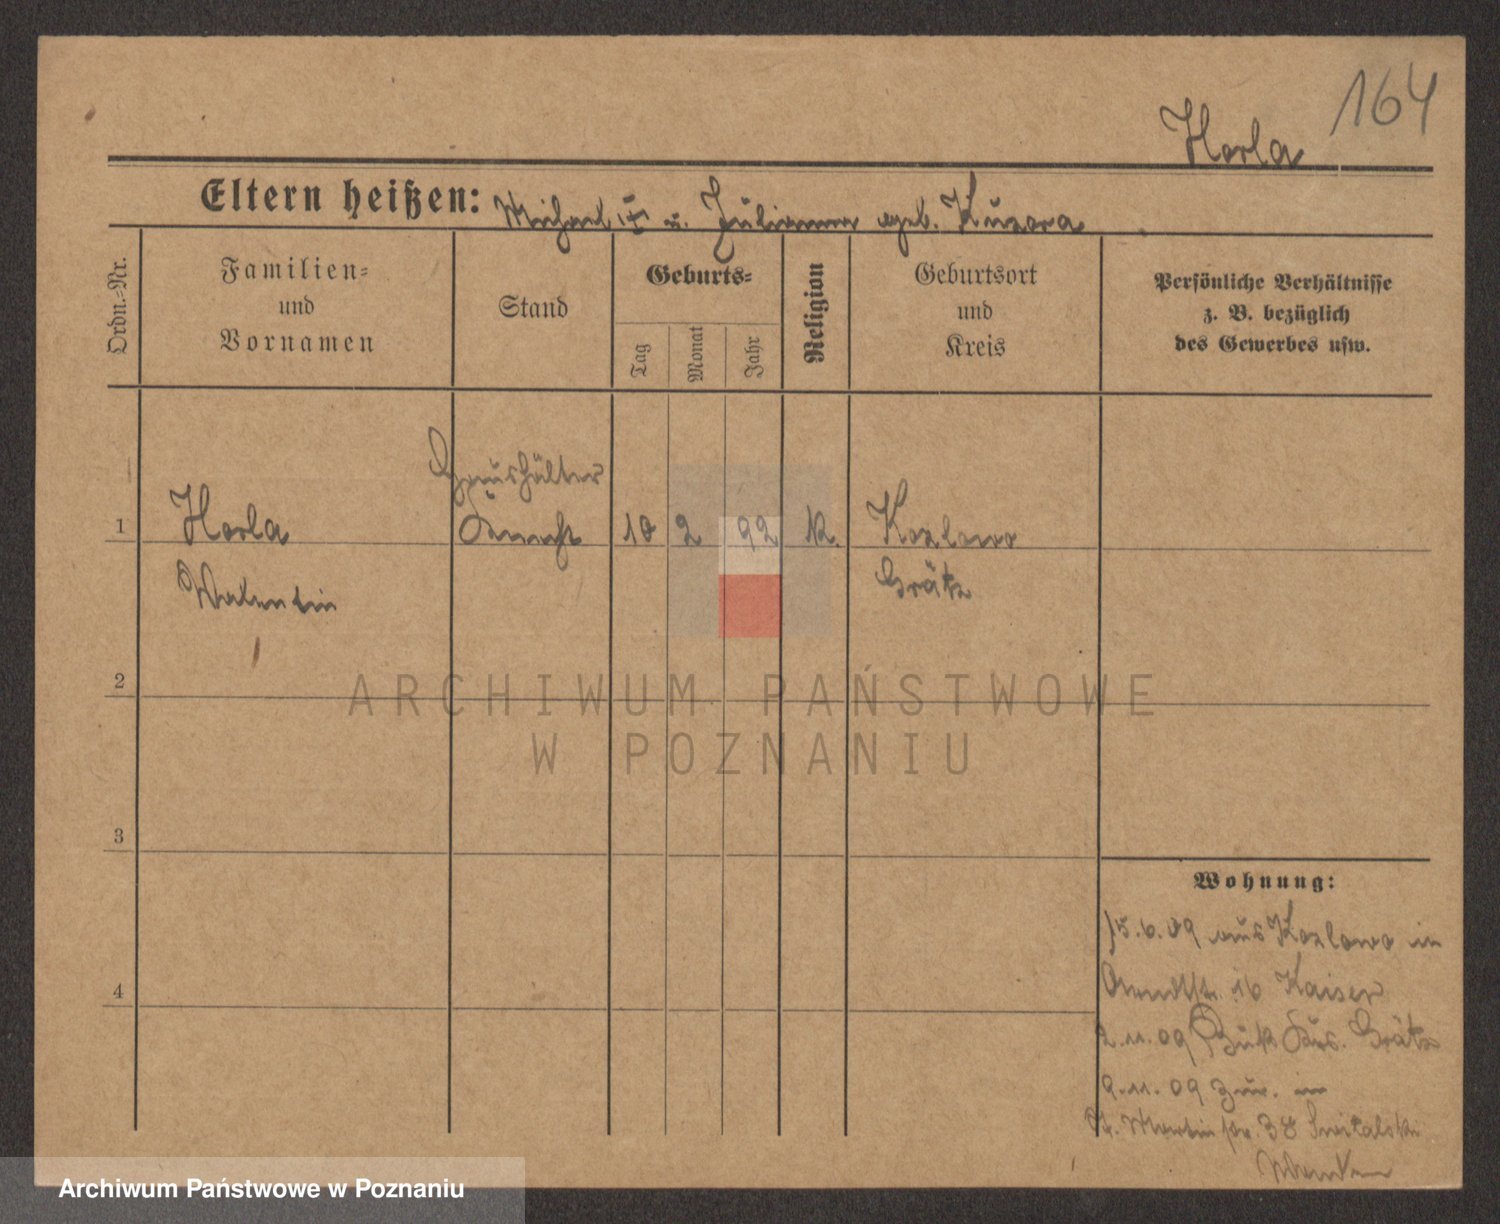 164
Horla
Eltern heißen: Michael u. Julianna geb. Kuzora
Ordn.=Nr.
Familien=
und
Vornamen
Stand
Geburts=
Tag
Monat
Jahr
Religion
Geburtsort
und
Kreis
Persönliche Verhältnisse
z. B. bezüglich
des Gewerbes usw.
Haushälter
1 Horla Knecht 10 2 92 K. Kozlowo
Walentin Grätz
2
ARCHIWUM PAŃSTWOWE
W POZNANIU
3
4
Wohnung:
15.6.09 aus Kozlowo in
16 Kaiser
2.11.09 Buk Krs. Grätz
9.11.09 zur. in
St. Martin str. 38
Archiwum Państwowe w Poznaniu